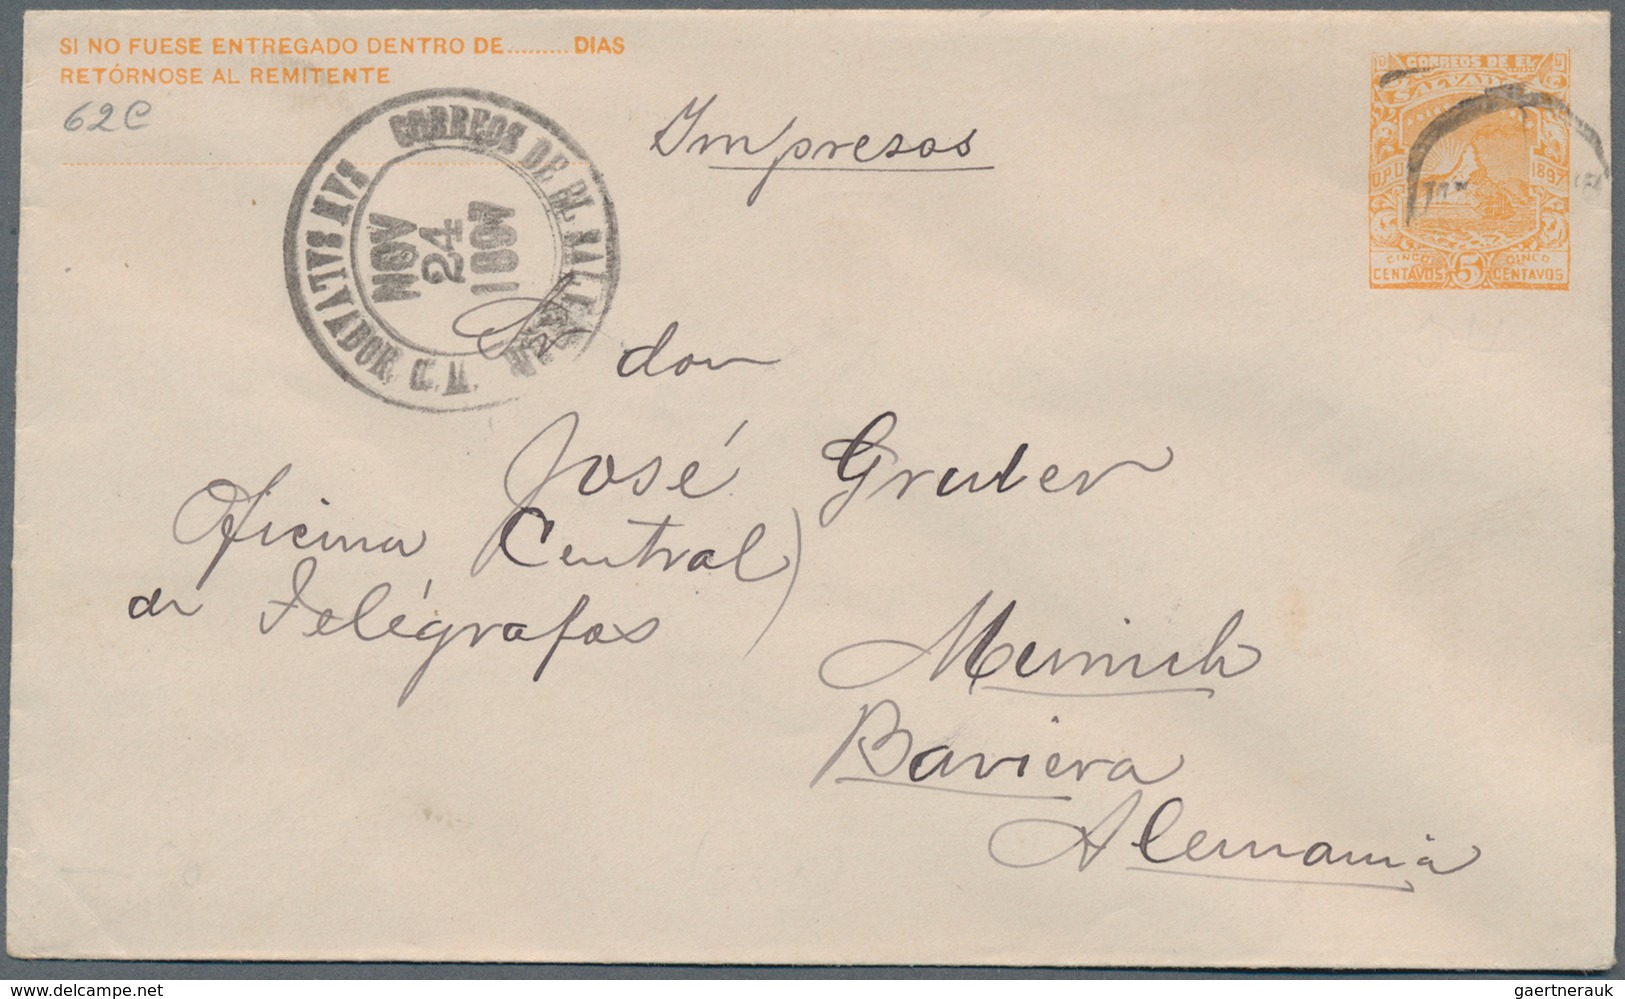 SI NO FUESE ENTREGADO DENTRO DE.......... DIAS
RETÓRNOSE AL REMITENTE
62C
Impresos
CORREOS DE EL SALVADOR
SAN SALVADOR, C.A.
NOV
24
1897
CORREOS DE EL
SALVADOR
U.P.U. 1897
CINCO 5 CINCO
CENTAVOS CENTAVOS
don
José Gruber
Oficina Central)
de Telégrafos
Munich
Baviera
Alemania
www.delcampe.net
gaertnerauk